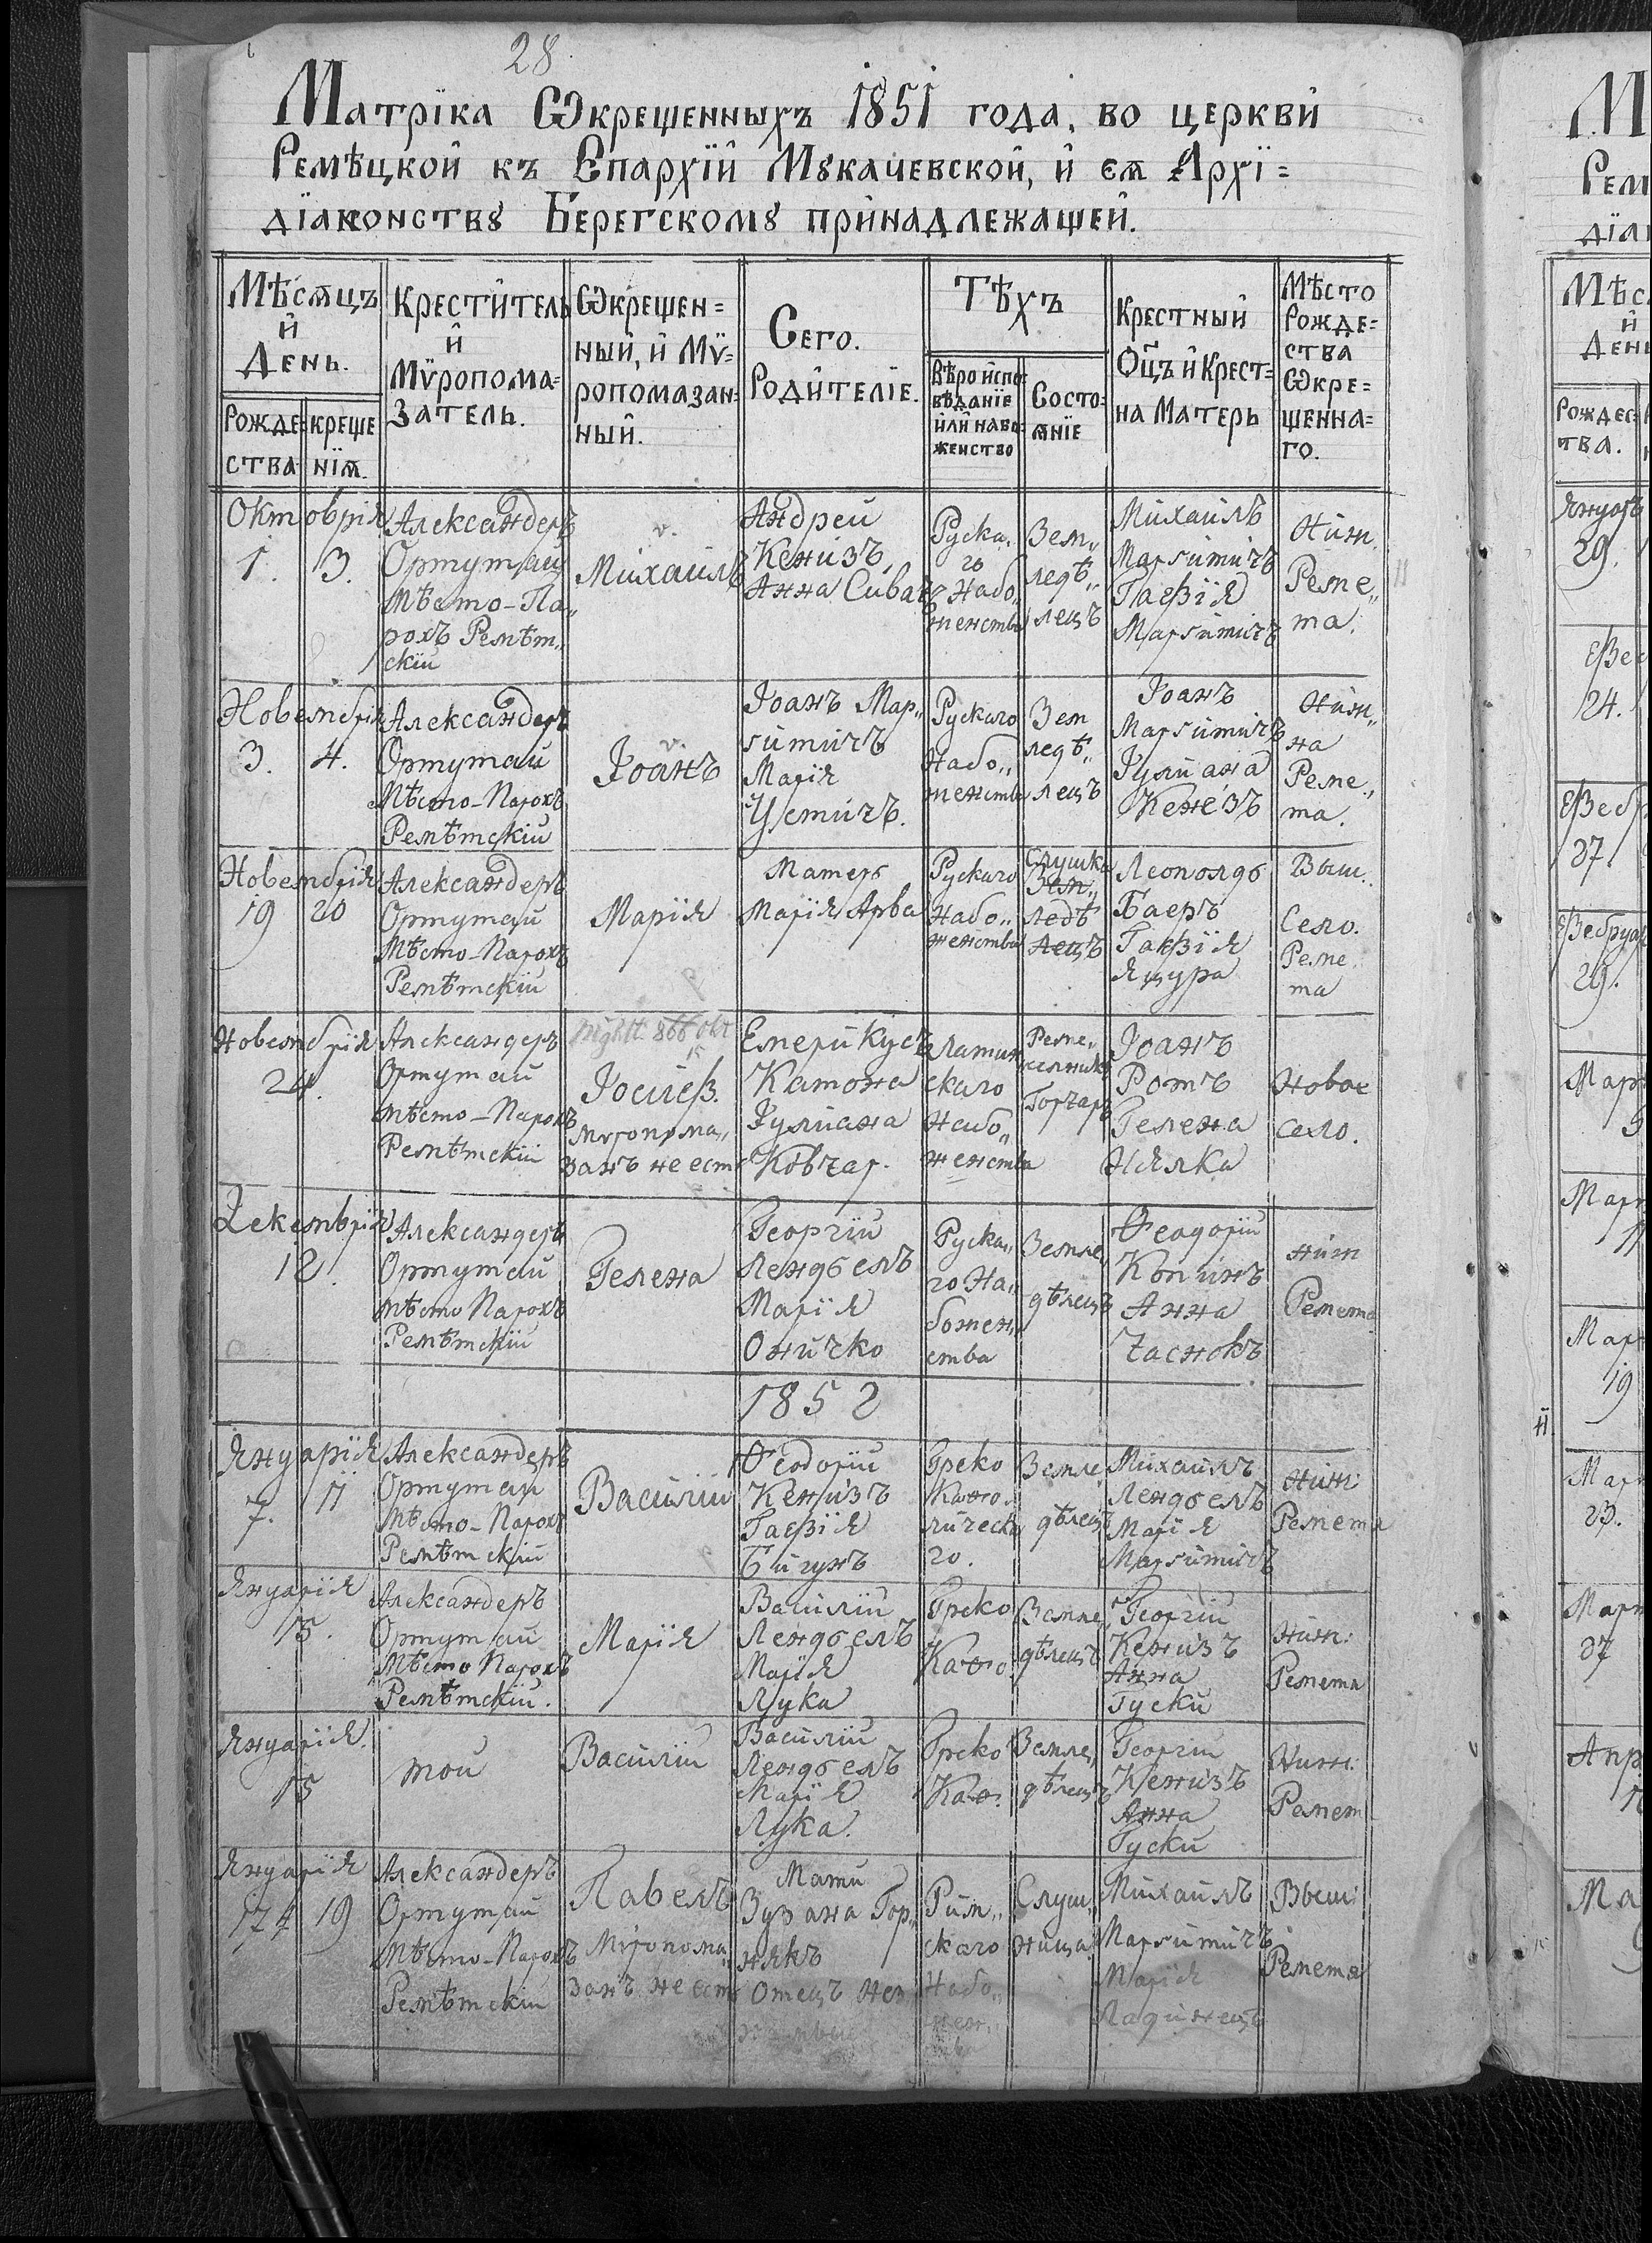 28
Матріка Ѡкрещенныхъ 1851 года, во церкви
Ремѣцкой къ Епархїй Мꙋкачевской, й єѧ Архї=
дїаконствꙋ Берегскомꙋ принадлежащей.
Мѣсѧцъ
й
День.
Рожде=
ства
креще
нїѧ.
Креститель
й
Мѵропома=
затель.
Ѡкрещен=
ный, й Мѵ=
ропомазан=
ный.
Сего.
Родителїе.
Тѣхъ
Вѣро йспо
вѣданїе
йлй набо=
женство
Состо=
ѧнїе
Крестный
Оц҃ъ й Крест=
на Матерь
Мѣсто
Рожде=
ства
Ѡкре=
щенна=
го.
Октоврія
1. 3.
Александеръ
Ортутай
Мѣсто-Па„
рохъ Ремѣт„
скїй
v.
Михаилъ
Андрей
Кенизъ,
Анна Сивач
Руска„
го
Набо„
женства
Зем„
ледѣ„
лецъ
Михаилъ
Маргитичъ
Гафїя
Маргитичъ
Ниж.
Реме„
та.
Новембрія
3. 4.
Александеръ
Ортутай
Мѣсто-Парохъ
Ремѣтскїй
v.
Іоанъ
Іоанъ Мар„
гитичъ
Марія
Устичъ.
Рускаго
Набо„
женства
Зем
ледѣ„
лецъ
Іоанъ
Маргитичъ
Іуліана
Кенезъ
Ниж„
на
Реме„
та.
Новембрія
19 20
Александеръ
Ортутай
Мѣсто-Парохъ
Ремѣтскїй
Марїя
Матерь
Марїя Арва
Рускаго
Набо„
женства
Слушка
Зем„
ледѣ
лецъ
Леополдъ
Баеръ
Гафїя
Яцура
Выш.
Село.
Реме
та
Новембрія
24.
Александеръ
Ортутай
Мѣсто-Парохъ
Ремѣтскїй
Іосиеф.
Мѵропома„
занъ не естъ
Емерикусъ
Катона
Іуліана
Ковчар.
Латин
скаго
Набо„
женства
Реме„
селникъ
Горчаръ
Іоанъ
Ротъ
Гелена
Нялка
Новое
село.
Декемврія
12.
Александеръ
Ортутай
Мѣсто Парохъ
Ремѣтскїй
Гелена
Георгїй
Лендьелъ
Марїя
Оничко
Руска„
го На„
божен„
ства
Земле„
дѣлецъ
Ѳеодорїй
Копинъ
Анна
Часнокъ
ниж
Ремета
1852
Януарїя
7. 11
Александеръ
Ортутай
Мѣсто-Парохъ
Ремѣтскїй
Василїй
Ѳеодорїй
Кенизъ
Гафїя
Бигунъ
Греко
Каѳо.
лическа
го.
Земле
дѣлецъ
Михаилъ
Лендьелъ
Марїя
Маргитичъ
ниж:
Ремета
Януарїя
15.
Александеръ
Ортутай
Мѣсто Парохъ
Ремѣтскїй.
Марїя
Василїй
Лендьелъ
Марїя
Лука
Греко
Каѳо.
Земле„
дѣлецъ
Георгїй
Кенизъ
Анна
Гуски
ниж:
Ремета
Януарїя.
15
той
Василїй
Василїй
Лендьелъ
Марїя
Лука.
Греко
Каѳ.
Земле„
дѣлецъ
Георгїй
Кенизъ
Анна
Гуски
Ниж:
Ремет
Януарїя
174 19
Александеръ
Ортутай
Мѣсто-Парохъ
Ремѣтскїй
Павелъ
Мѵропома„
занъ не естъ
Мати
Зузана Гор„
някъ
Отецъ нез
Рим„
скаго
Набо„
жен„
ства
Служ„
ница
Михаилъ
Маргитичъ
Марїя
Ладинецъ
Выш:
Ремета